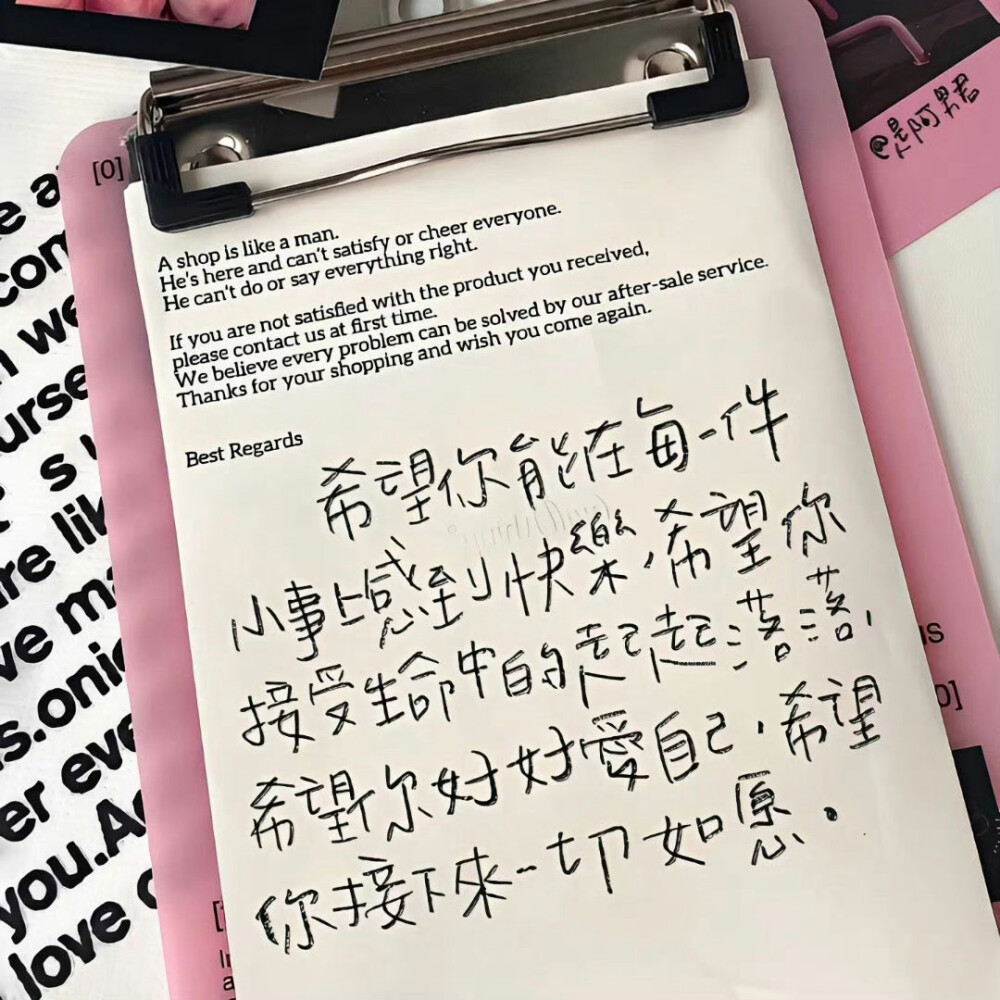 [0]
@是阿界君
A shop is like a man.
He's here and can't satisfy or cheer everyone.
He can't do or say everything right.
If you are not satisfied with the product you received,
please contact us at first time.
We believe every problem can be solved by our after-sale service.
Thanks for your shopping and wish you come again.
Best Regards
希望你能在每一件
小事上感到快樂,希望你
接受生命中的起起落落,
希望你好好愛自己,希望
你接下來一切如愿.
e a
con
n we
urse
s u
re lik
ve ma
s.onic
er eve
you.Ac
love
us
0]
[
In
a